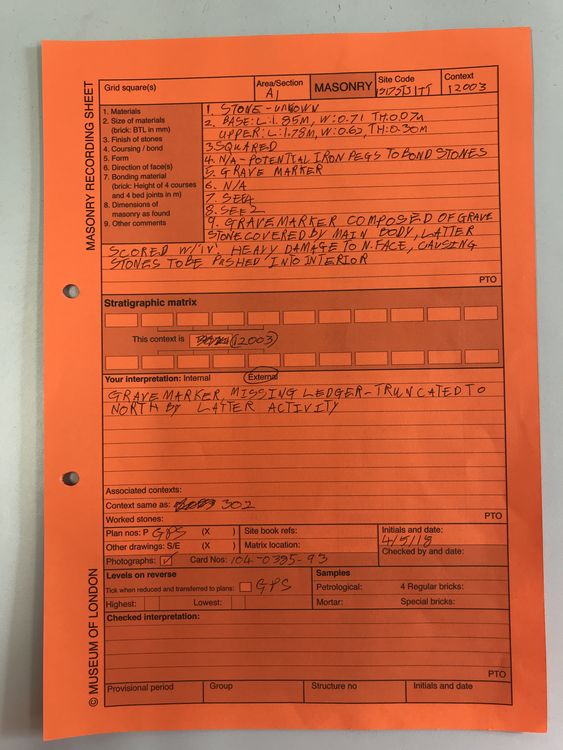 MASONRY RECORDING SHEET
© MUSEUM OF LONDON
Grid square(s)
Area/Section
A1
MASONRY
Site Code
Context
12003
1. Materials
2. Size of materials
(brick: BTL in mm)
3. Finish of stones
4. Coursing / bond
5. Form
6. Direction of face(s)
7. Bonding material
(brick: Height of 4 courses
and 4 bed joints in m)
8. Dimensions of
masonry as found
9. Other comments
1. STONE - UNKOWN
2. BASE: L: 1.85M, W: 0.71 TH: 0.07M
UPPER: L: 1.78M, W: 0.62, TH: 0.30M
3. SQUARED
4. N/A - POTENTIAL IRON PEGS TO BOND STONES
5. GRAVE MARKER
6. N/A
7. SEE 4
8. SEE 2
9. GRAVEMARKER COMPOSED OF GRAVE
STONE COVERED BY MAIN BODY, LATTER
SCORED W/ HEAVY DAMAGE TO N. FACE, CAUSING
STONES TO BE PUSHED INTO INTERIOR
PTO
Stratigraphic matrix
This context is 12003
Your interpretation: Internal External
GRAVE MARKER, MISSING LEDGER - TRUNCATED TO
NORTH BY LATTER ACTIVITY
Associated contexts:
Context same as: 302
Worked stones:
PTO
Plan nos: P GPS (X )
Site book refs:
Initials and date:
4/5/18
Other drawings: S/E (X )
Matrix location:
Checked by and date:
Photographs: ☑ Card Nos: 104-0385-93
Levels on reverse
Tick when reduced and transferred to plans: GPS
Highest: Lowest:
Samples
Petrological: 4 Regular bricks:
Mortar: Special bricks:
Checked interpretation:
PTO
Provisional period
Group
Structure no
Initials and date